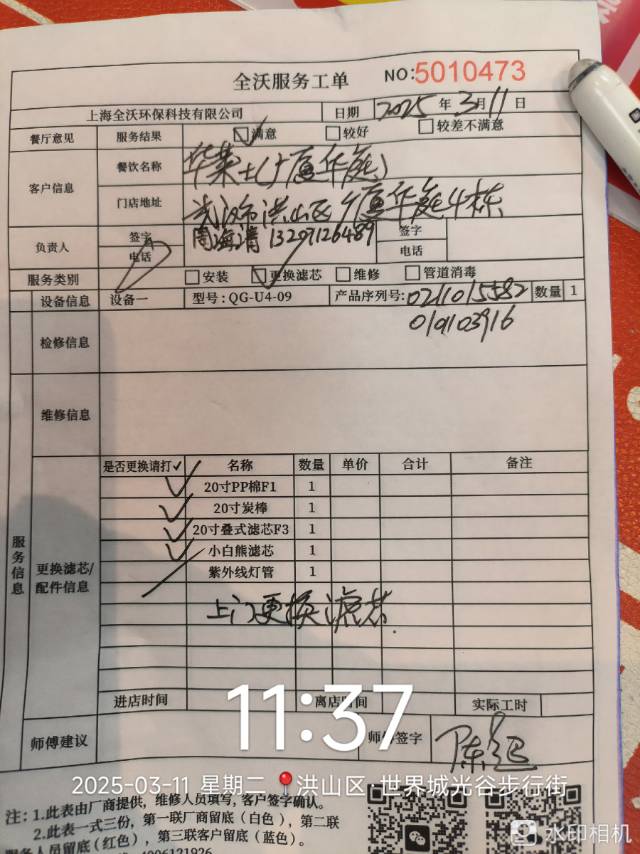 全沃服务工单 NO:5010473
上海全沃环保科技有限公司 日期 2025 年 3月 11 日
餐厅意见 服务结果 满意 较好 较差不满意
客户信息 餐饮名称 华莱士(广厦华庭)
门店地址 武汉市洪山区广厦华庭4栋
负责人 签字 周海清 13297126489 签字
电话 电话
服务类别 安装 更换滤芯 维修 管道消毒
设备信息 设备一 型号:QG-U4-09 产品序列号:0211015582 数量 1
010103916
检修信息
维修信息
服务信息
更换滤芯/配件信息
是否更换请打✓ 名称 数量 单价 合计 备注
✓ 20寸PP棉F1 1
✓ 20寸炭棒 1
✓ 20寸叠式滤芯F3 1
✓ 小白熊滤芯 1
紫外线灯管 1
上门更换滤芯.
进店时间 离店时间 实际工时
师傅建议 师傅签字
11:37
2025-03-11 星期二 洪山区·世界城光谷步行街
注:1.此表由厂商提供,维修人员填写,客户签字确认。
2.此表一式三份,第一联厂商留底(白色),第二联
服务人员留底(红色),第三联客户留底(蓝色)。
4006121926
水印相机